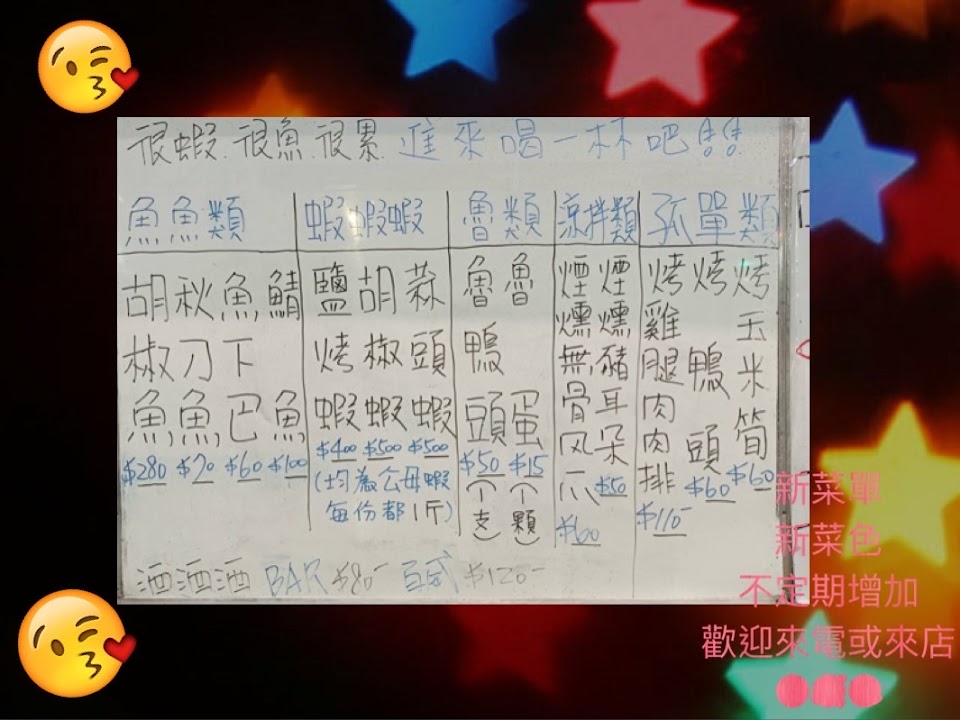 很蝦.很魚.很累 進來喝一杯吧!!
魚魚類
胡椒魚 $280
秋刀魚 $70
魚下巴 $60
鯖魚 $100
蝦蝦蝦
鹽烤蝦 $400
胡椒蝦 $500
蒜頭蝦 $500
(均為公母蝦
每份都1斤)
魯類
魯鴨頭 $50(1支)
魯蛋 $15(1顆)
涼拌類
煙燻無骨凤爪 $60
煙燻豬耳朵 $50
孤單類
烤雞腿肉肉排 $110-
烤鴨頭 $60
烤玉米筍 $60
酒酒酒 BAR $80- 百威 $120-
新菜單
新菜色
不定期增加
歡迎來電或來店